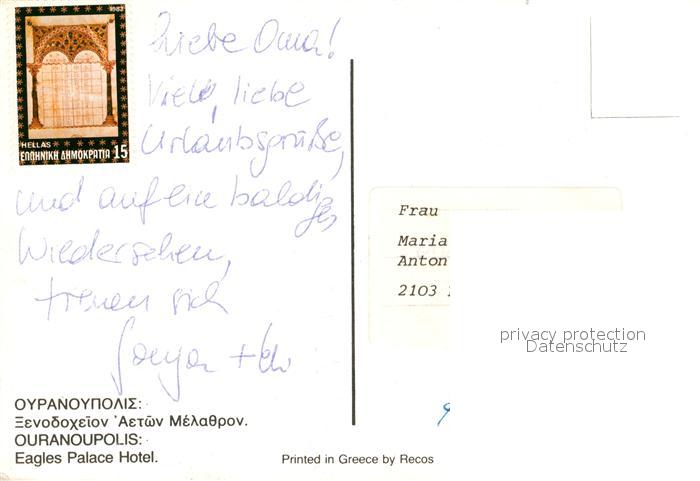 1982
HELLAS
ΕΛΛΗΝΙΚΗ ΔΗΜΟΚΡΑΤΙΑ 15
Liebe Oma!
Viele, liebe
Urlaubsgrüße,
und auf ein baldiges
Wiedersehen,
freuen sich
Sonja +
ΟΥΡΑΝΟΥΠΟΛΙΣ:
Ξενοδοχεῖον Ἀετῶν Μέλαθρον.
OURANOUPOLIS:
Eagles Palace Hotel.
Printed in Greece by Recos
Frau
Maria
Anton
2103
privacy protection
Datenschutz